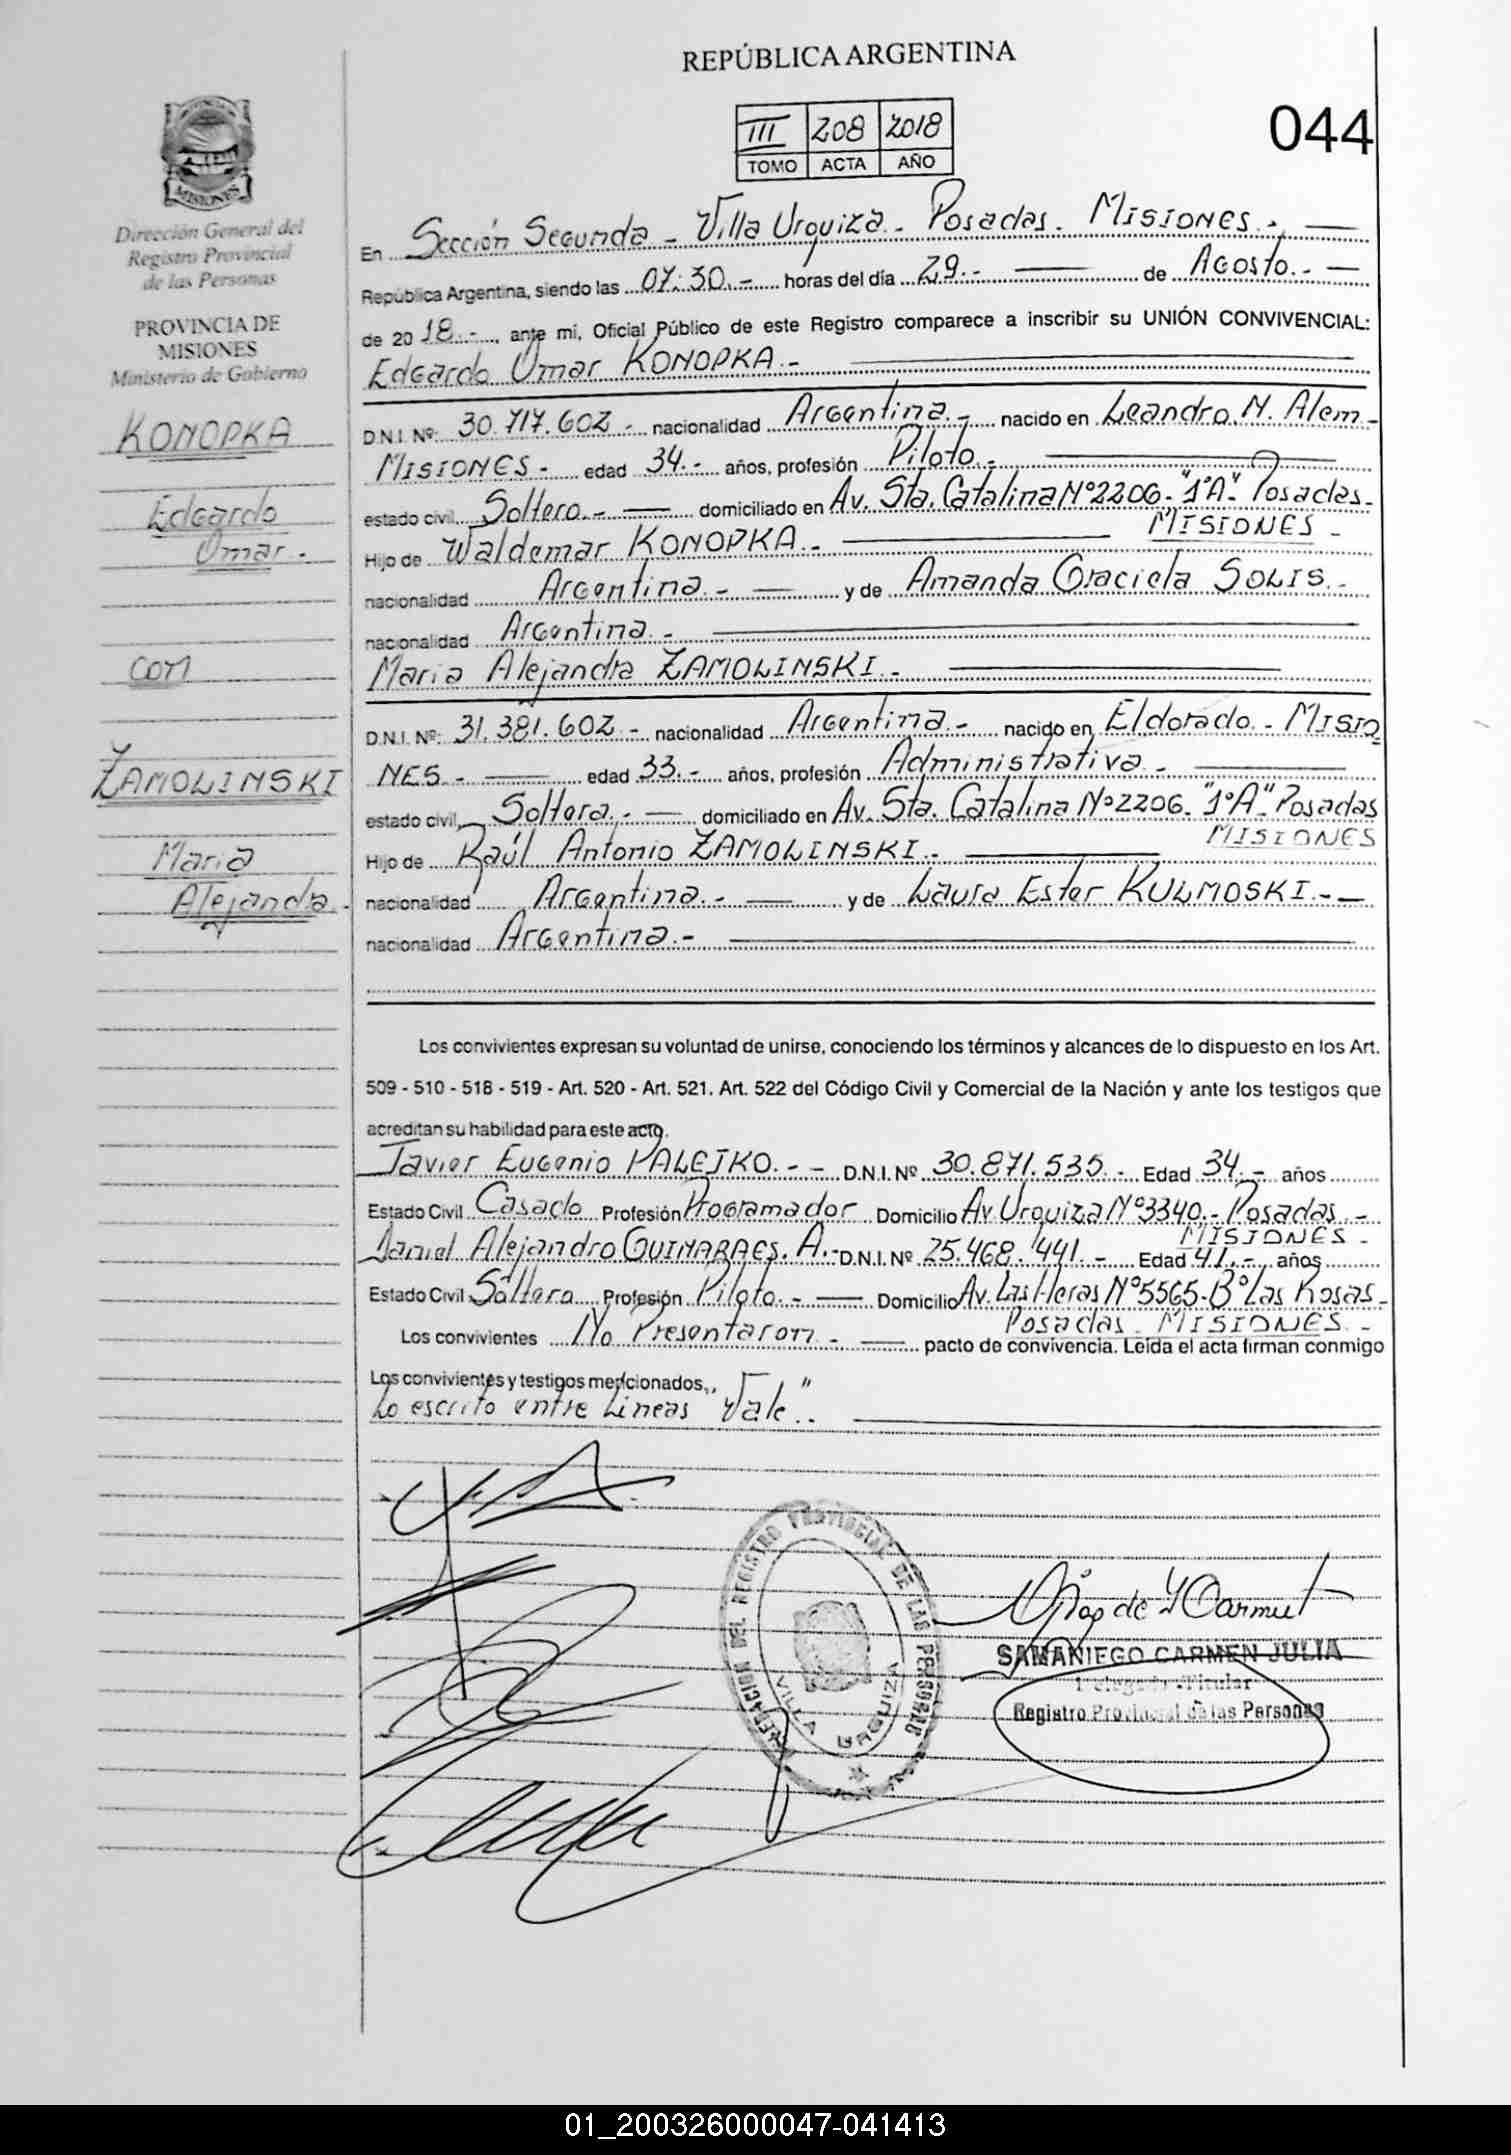 REPÚBLICA ARGENTINA
III 208 2018
TOMO ACTA AÑO
044
Dirección General del
Registro Provincial
de las Personas
PROVINCIA DE
MISIONES
Ministerio de Gobierno
KONOPKA
Edgardo
Omar.-
con
ZAMOLINSKI
Maria
Alejandra.-
En Sección Segunda - Villa Urquiza - Posadas - Misiones.-
República Argentina, siendo las 07:30.- horas del día 29.- de Agosto.-
de 2018.-, ante mi, Oficial Público de este Registro comparece a inscribir su UNIÓN CONVIVENCIAL:
Edgardo Omar KONOPKA.-
D.N.I. Nº: 30.717.602.- nacionalidad Argentina.- nacido en Leandro. N. Alem-
Misiones- edad 34.- años, profesión Piloto.-
estado civil Soltero.- domiciliado en Av. Sta. Catalina Nº2206-"1ºA". Posadas.
MISIONES-
Hijo de Waldemar KONOPKA.-
nacionalidad Argentina.- y de Amanda Graciela SOLIS.-
nacionalidad Argentina.-
Maria Alejandra ZAMOLINSKI.-
D.N.I. Nº: 31.381.602.- nacionalidad Argentina.- nacido en Eldorado.- Misio
NES.- edad 33.- años, profesión Administrativa.-
estado civil Soltera.- domiciliado en Av. Sta. Catalina Nº2206-"1ºA". Posadas
MISIONES
Hijo de Raúl Antonio ZAMOLINSKI.-
nacionalidad Argentina.- y de Laura Ester KULMOSKI.-
nacionalidad Argentina.-
Los convivientes expresan su voluntad de unirse, conociendo los términos y alcances de lo dispuesto en los Art.
509 - 510 - 518 - 519 - Art. 520 - Art. 521. Art. 522 del Código Civil y Comercial de la Nación y ante los testigos que
acreditan su habilidad para este acto.
Javier Eugenio PALEJKO.-- D.N.I. Nº 30.871.535.- Edad 34.- años
Estado Civil Casado Profesión Programador Domicilio Av. Urquiza Nº3340.- Posadas.-
MISIONES-
Daniel Alejandro GUIMARAES. A.- D.N.I. Nº 25.468.441.- Edad 41.- años
Estado Civil Soltero Profesión Piloto.- Domicilio Av. Las Heras Nº5565-Bº Las Rosas-
Posadas. MISIONES.-
Los convivientes No Presentaron- pacto de convivencia. Leída el acta firman conmigo
Los convivientes y testigos mencionados,
Lo escrito entre Lineas "Vale".
DELEGACION DEL REGISTRO PROVINCIAL DE LAS PERSONAS
VILLA URQUIZA
SAMANIEGO CARMEN JULIA
Delegada Titular
Registro Provincial de las Personas
PROVINCIA DE
MISIONES
01_200326000047-041413